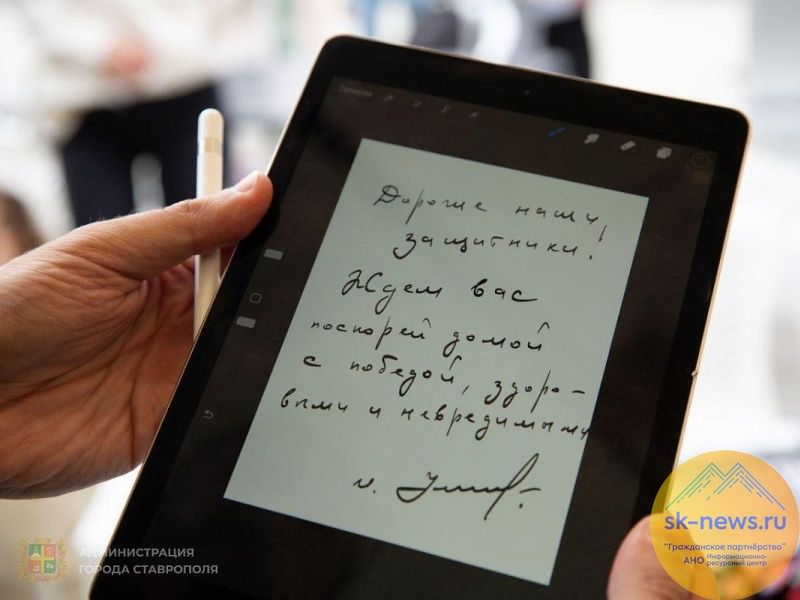 Дорогие наши
защитники!
Ждем вас
поскорей домой
с победой, здоро-
выми и невредимыми
АДМИНИСТРАЦИЯ
ГОРОДА СТАВРОПОЛЯ
sk-news.ru
"Гражданское партнёрство"
АНО Информационно-
ресурсный центр